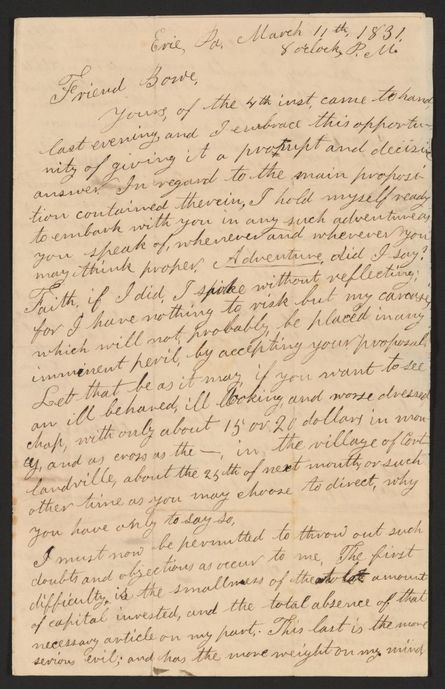 Erie, Pa, March 11th, 1831,
8 oclock, P. M.
Friend Bowe,
Yours, of the 4th inst, came to hand
last evening, and I embrace this opportu-
nity of giving it a prompt and decisive
answer. In regard to the main proposi-
tion contained therein, I hold myself ready
to embark with you in any such adventure as
you speak of, whenever and wherever you
may think proper. Adventure, did I say?
Faith, if I did, I spoke without reflecting;
for I have nothing to risk but my carcase,
which will not, probably, be placed in any
imminent peril, by accepting your proposal.
Let that be as it may, if you want to see
an ill behaved, ill looking, and worse dressed
chap, with only about 15 or 20 dollars in mon
ey, and as cross as the —, in the village of Cort
landville, about the 25th of next month, or such
other time as you may choose to direct, why
you have only to say so,
I must now be permitted to throw out such
doubts and objections as occur to me, The first
difficulty, is the smallness of the amount
of capital invested, and the total absence of that
necessary article on my part. This last is the more
serious evil; and has the more weight on my mind